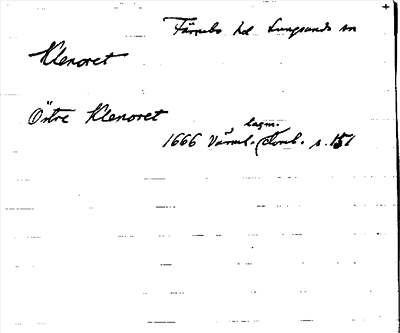 Färnebo hd Lungsunds sn
Klenoret
Östre Klenoret
lagm.
1666 Värml. Domb. s. 151